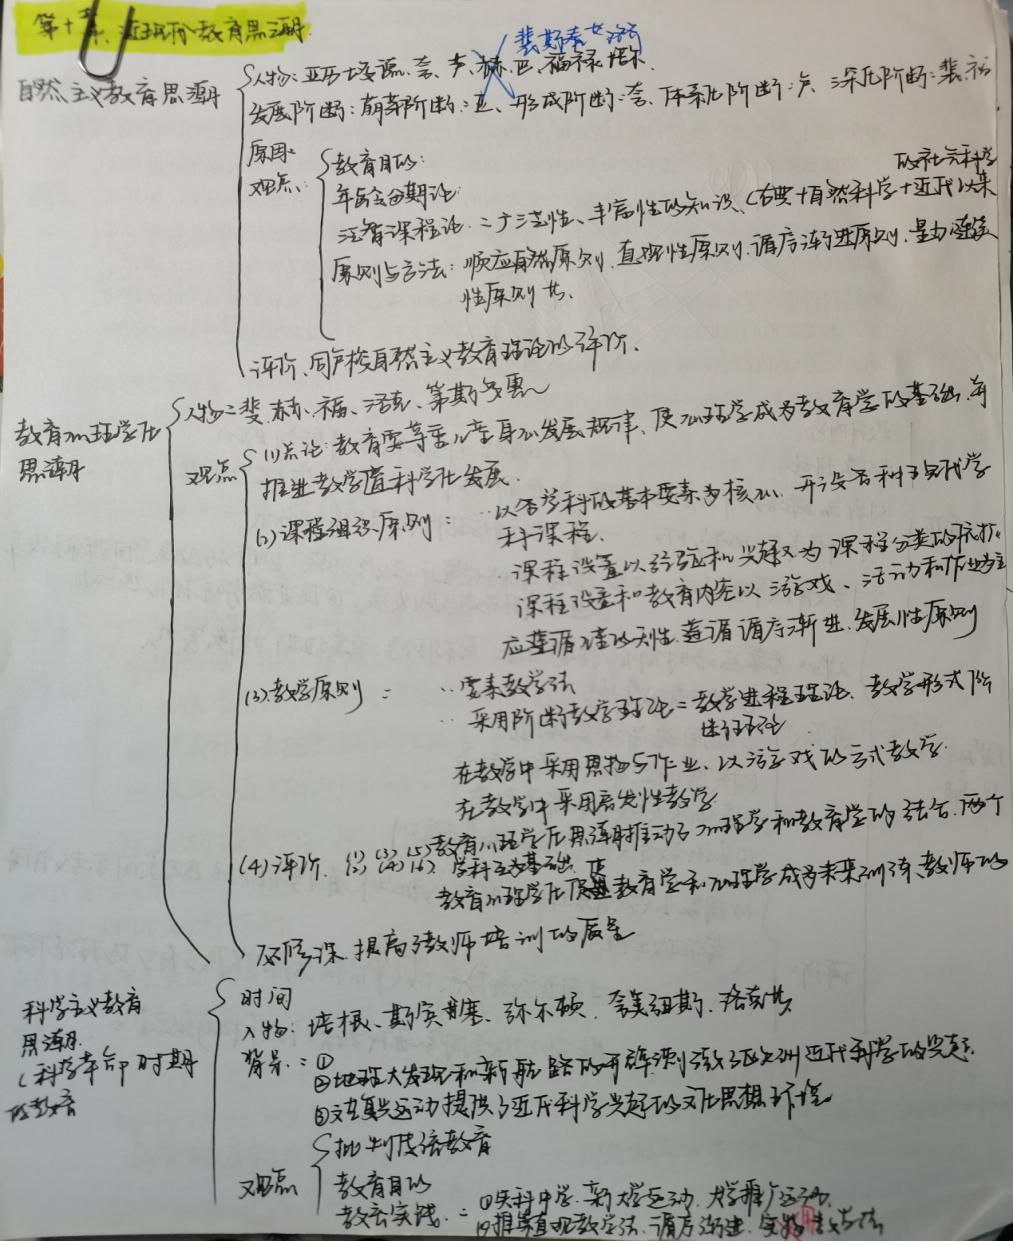 第十章、近现代教育思潮
裴斯泰洛齐
自然主义教育思潮
人物:亚历士多德、夸、卢、赫、巴、福禄培尔
发展阶断:萌芽阶断:亚、形成阶断:夸、体系化阶断:卢、深化阶断:裴、福
原因:
观点:
教育目的:
的社会科学
年龄分期论
泛智课程论:广泛性、丰富性的知识、(古典+自然科学+近代以来
原则与方法:顺应自然原则、直观性原则、循序渐进原则、量力
性原则 共
评价、同卢梭自然主义教育理论的评价、
教育心理学化
思潮
人物:裴、赫、福、洛克、第斯多惠
观点
(1)总论:教育要尊重儿童身心发展规律、使心理学成为教育学的基础、并
推进教学值科学化发展.
(2)课程组织原则:
以各学科的基本要素为核心、开设各种
科课程.
课程设置以经验和兴趣为课程分类的依据.
课程设置和教育内容以游戏、活动和作业为主
应遵循儿童的天性、遵循循序渐进、发展性原则
(3)教学原则=
要素教学法
采用阶断教学理论=教学进程理论、教学形式阶
断理论
在教学中采用恩物与作业、以游戏的方式教学.
在教学中采用启发性教学
(4)评价
教育心理学化思潮推动了心理学和教育学的结合、两个
学科互为基础、
教育心理学化使教育学和心理学成为未来训练教师的
必修课、提高了教师培训的质量
科学主义教育
思潮.
(科学革命时期
的教育
时间
人物:培根、斯宾塞、弥尔顿、洛克 共
背景:①
②地理大发现和新航路的开辟刺激了欧洲近代科学的兴起.
③文艺复兴运动提供了近代科学兴起的文化思想环境
观点
批判传统教育
教育目的
教育实践:=①实科中学、新大学运动、大学推广运动.
②推崇直观教学法、循序渐进、实物教学法